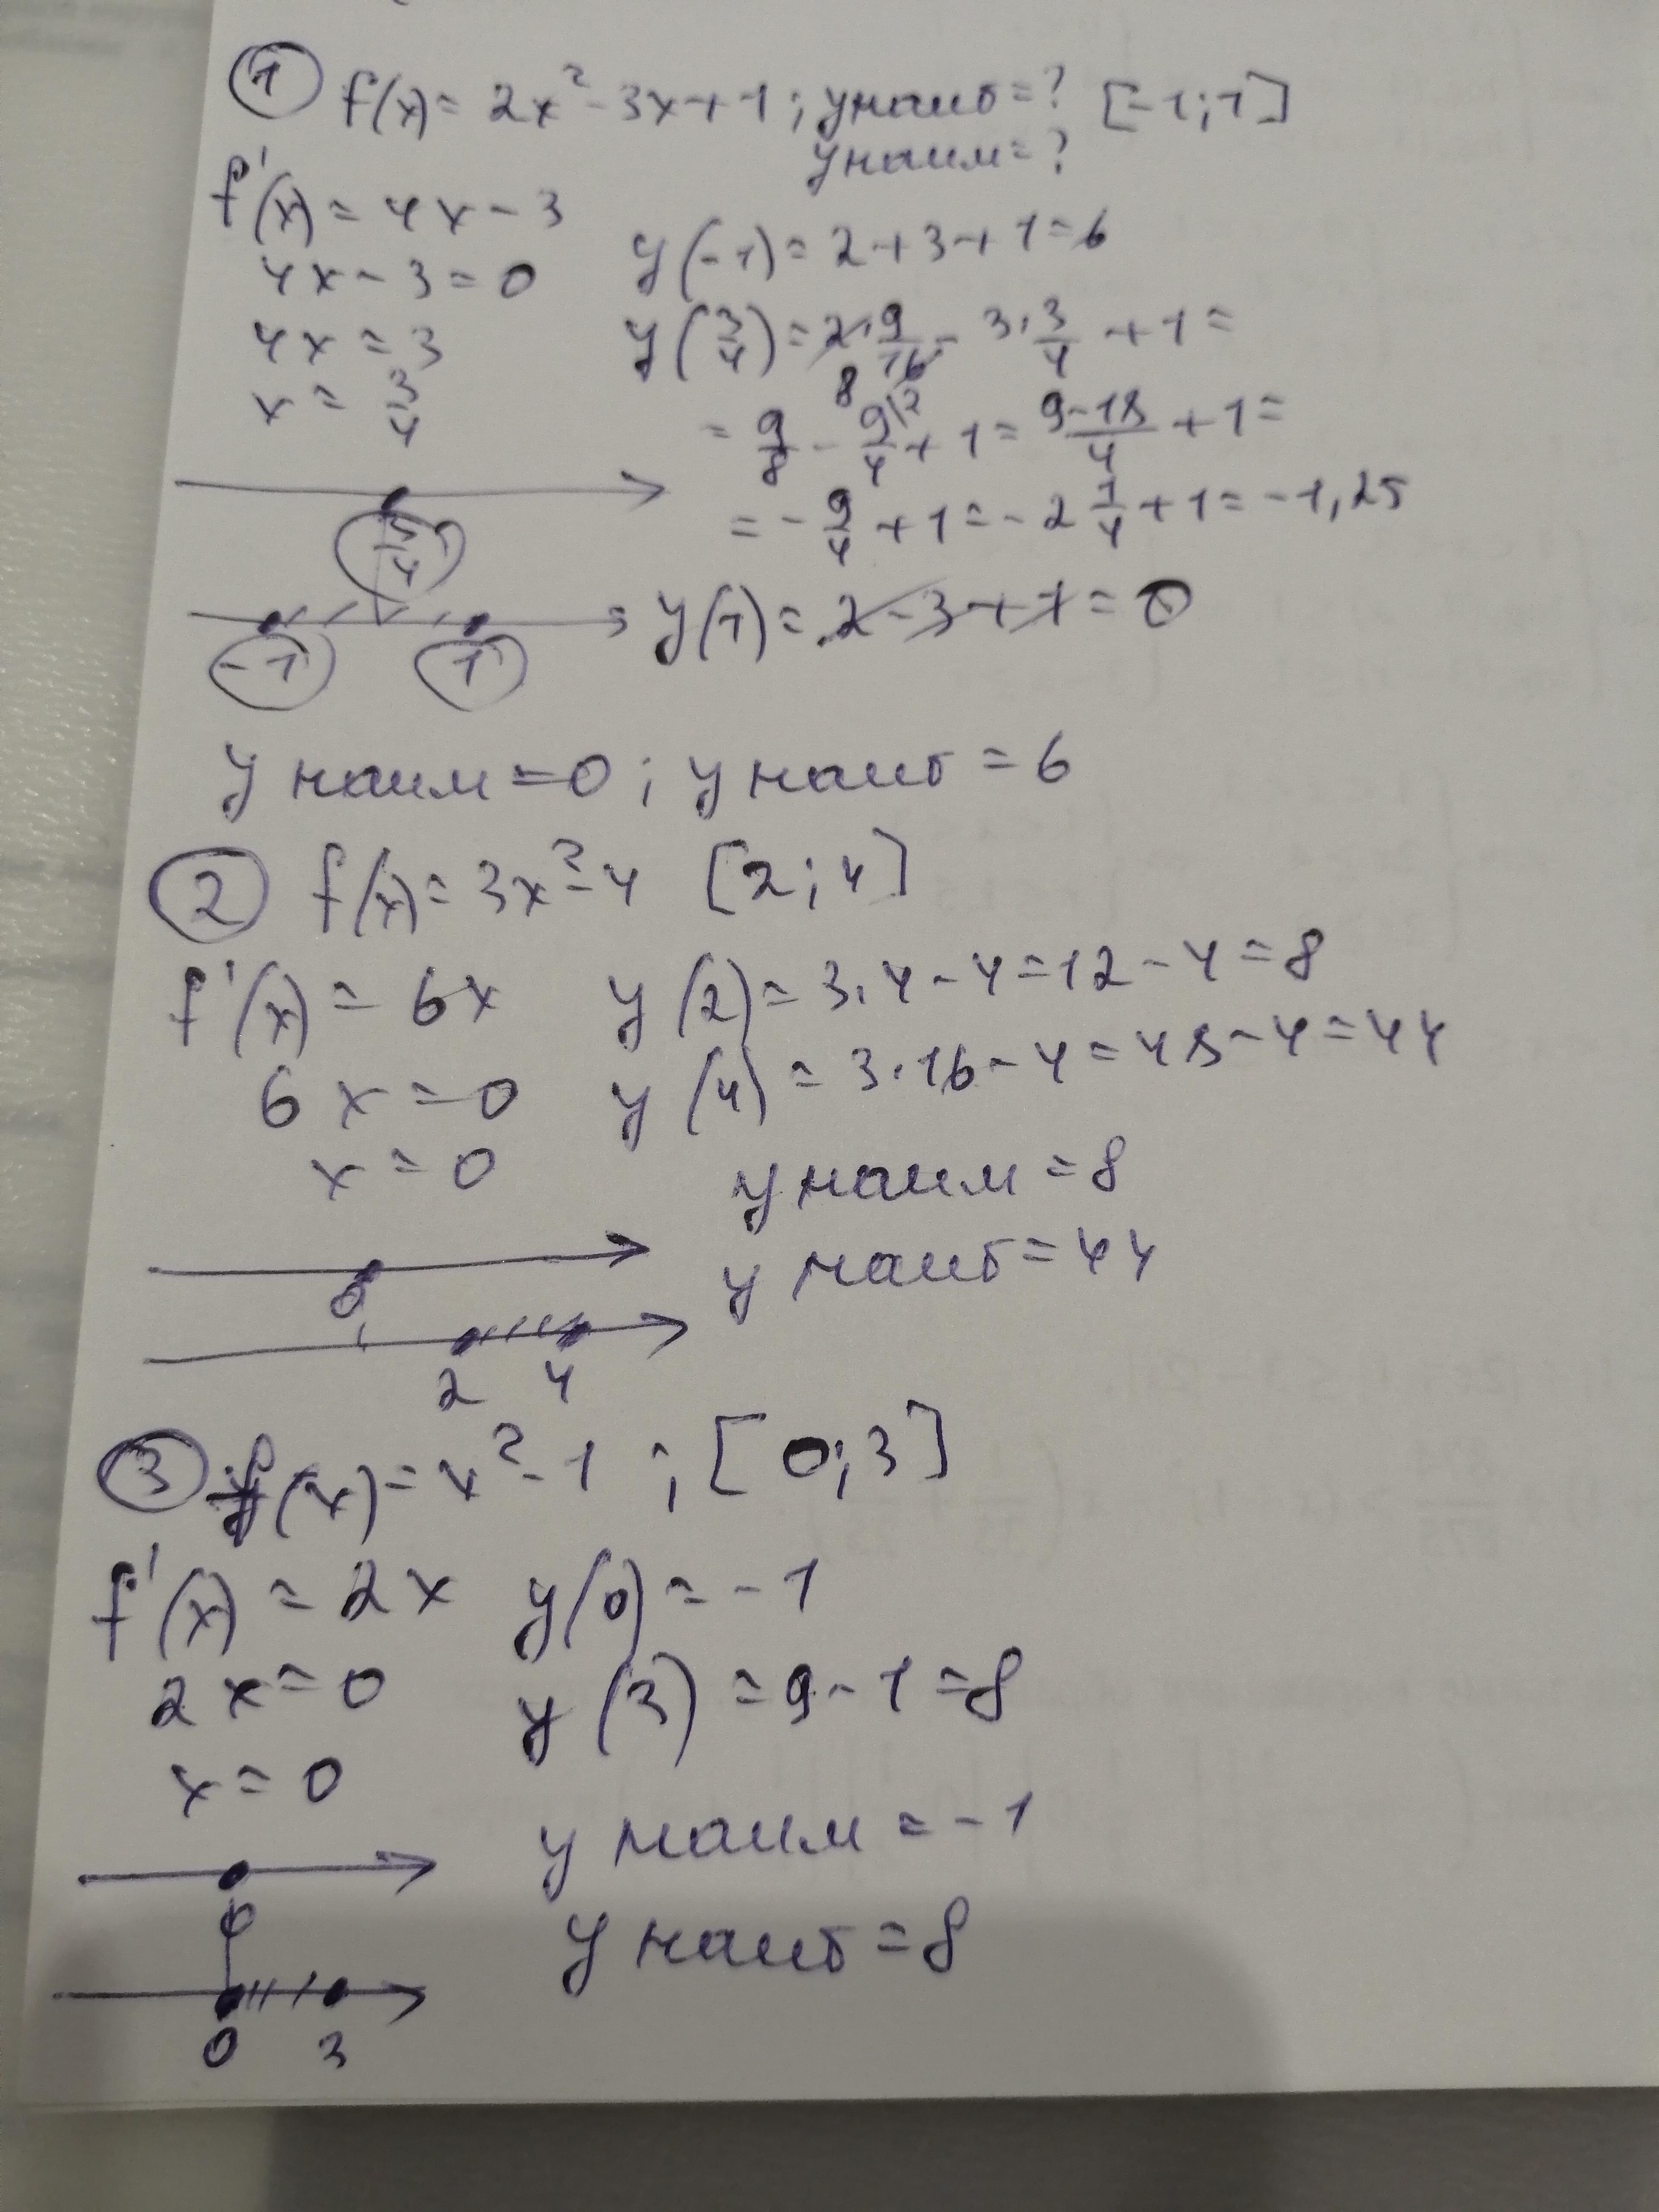 ① f(x) = 2x² - 3x + 1 ; y наиб = ? [-1; 1]
y наим = ?
f'(x) = 4x - 3
4x - 3 = 0
4x = 3
x = 3/4
y(-1) = 2 + 3 + 1 = 6
y(3/4) = 2 · 9/16 - 3 · 3/4 + 1 =
8
= 9/8 - 9/4 \2 + 1 = (9 - 18)/4 + 1 =
= - 9/4 + 1 = - 2 1/4 + 1 = - 1,25
y(1) = 2 - 3 + 1 = 0
3/4
-1 1
y наим = 0 ; y наиб = 6
② f(x) = 3x² - 4 [2; 4]
f'(x) = 6x
6x = 0
x = 0
y(2) = 3 · 4 - 4 = 12 - 4 = 8
y(4) = 3 · 16 - 4 = 48 - 4 = 44
y наим = 8
y наиб = 44
0
2 4
③ f(x) = x² - 1 ; [0; 3]
f'(x) = 2x
2x = 0
x = 0
y(0) = - 1
y(3) = 9 - 1 = 8
y наим = - 1
y наиб = 8
0
0 3